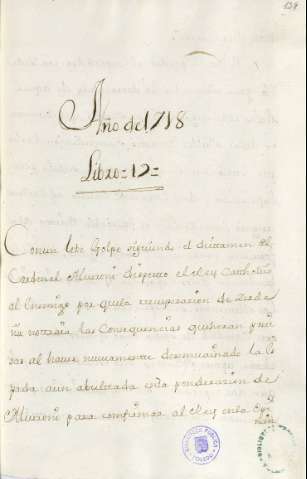 139
Año de 1718
Libro=12=
Comun este Golpe siguiendo el dictamen del
Cardenal Alveroni desperto el Rey Catholico
al Enemigo por que la recuperacion de Cerde
ña notoria las Consequencias quisieran
al haver nuevamente desenuainado la Es
pada aun abultada esta ponderacion de
Alveroni para confirmar al Rey en la
BIBLIOTECA PUBLICA
TOLEDO